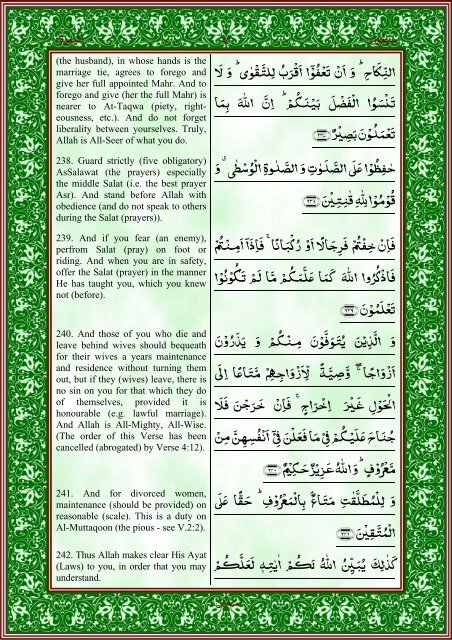 (the husband), in whose hands is the
marriage tie, agrees to forego and
give her full appointed Mahr. And to
forego and give (her the full Mahr) is
nearer to At-Taqwa (piety, right-
eousness, etc.). And do not forget
liberality between yourselves. Truly,
Allah is All-Seer of what you do.
238. Guard strictly (five obligatory)
AsSalawat (the prayers) especially
the middle Salat (i.e. the best prayer
Asr). And stand before Allah with
obedience (and do not speak to others
during the Salat (prayers)).
239. And if you fear (an enemy),
perfrom Salat (pray) on foot or
riding. And when you are in safety,
offer the Salat (prayer) in the manner
He has taught you, which you knew
not (before).
240. And those of you who die and
leave behind wives should bequeath
for their wives a years maintenance
and residence without turning them
out, but if they (wives) leave, there is
no sin on you for that which they do
of themselves, provided it is
honourable (e.g. lawful marriage).
And Allah is All-Mighty, All-Wise.
(The order of this Verse has been
cancelled (abrogated) by Verse 4:12).
241. And for divorced women,
maintenance (should be provided) on
reasonable (scale). This is a duty on
Al-Muttaqoon (the pious - see V.2:2).
242. Thus Allah makes clear His Ayat
(Laws) to you, in order that you may
understand.
النِّكَاحِ ؕ وَ اَنْ تَعْفُوْۤا اَقْرَبُ لِلتَّقْوٰى ؕ وَ لَا
تَنْسَوُا الْفَضْلَ بَيْنَكُمْ ؕ اِنَّ اللّٰهَ بِمَا
تَعْمَلُوْنَ بَصِيْرٌ ﴿۲۳۷﴾
حٰفِظُوْا عَلَى الصَّلَوٰتِ وَ الصَّلٰوةِ الْوُسْطٰى ۗ وَ
قُوْمُوْا لِلّٰهِ قٰنِتِيْنَ ﴿۲۳۸﴾
فَاِنْ خِفْتُمْ فَرِجَالًا اَوْ رُكْبَانًا ۚ فَاِذَاۤ اَمِنْتُمْ
فَاذْكُرُوا اللّٰهَ كَمَا عَلَّمَكُمْ مَّا لَمْ تَكُوْنُوْا
تَعْلَمُوْنَ ﴿۲۳۹﴾
وَ الَّذِيْنَ يُتَوَفَّوْنَ مِنْكُمْ وَ يَذَرُوْنَ
اَزْوَاجًا ۖۚ وَّصِيَّةً لِّاَزْوَاجِهِمْ مَّتَاعًا اِلَى
الْحَوْلِ غَيْرَ اِخْرَاجٍ ۚ فَاِنْ خَرَجْنَ فَلَا
جُنَاحَ عَلَيْكُمْ فِيْ مَا فَعَلْنَ فِيْۤ اَنْفُسِهِنَّ مِنْ
مَّعْرُوْفٍ ؕ وَ اللّٰهُ عَزِيْزٌ حَكِيْمٌ ﴿۲۴۰﴾
وَ لِلْمُطَلَّقٰتِ مَتَاعٌۢ بِالْمَعْرُوْفِ ؕ حَقًّا عَلَى
الْمُتَّقِيْنَ ﴿۲۴۱﴾
كَذٰلِكَ يُبَيِّنُ اللّٰهُ لَكُمْ اٰيٰتِهٖ لَعَلَّكُمْ